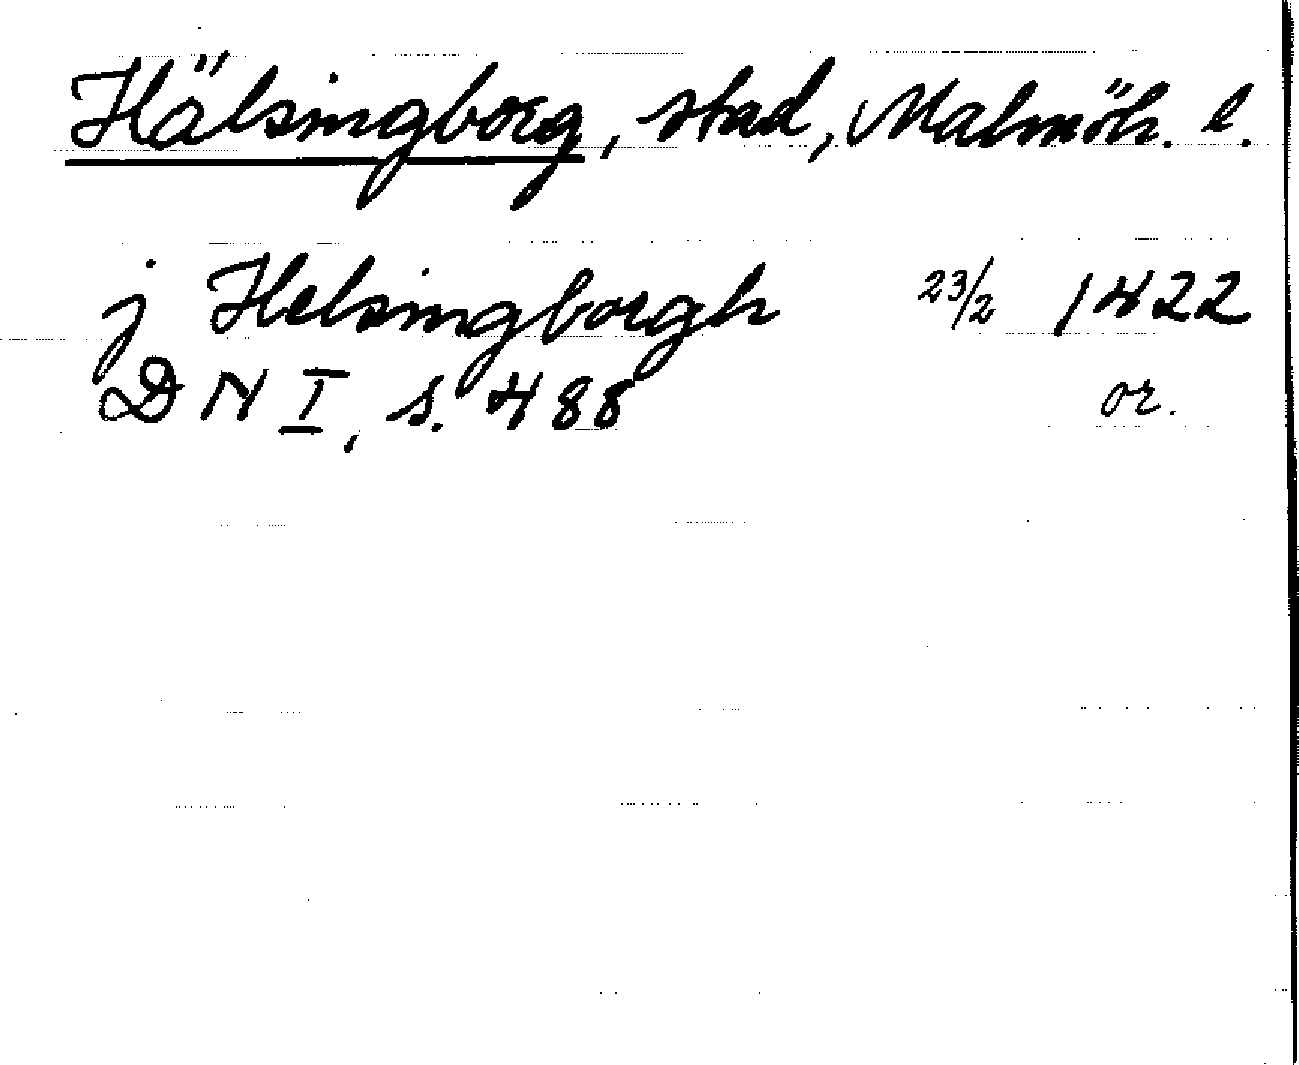 Hälsingborg, stad, Malmöh. l.
j Helsingborgh 23/2 1422
DN I, s. 488 or.